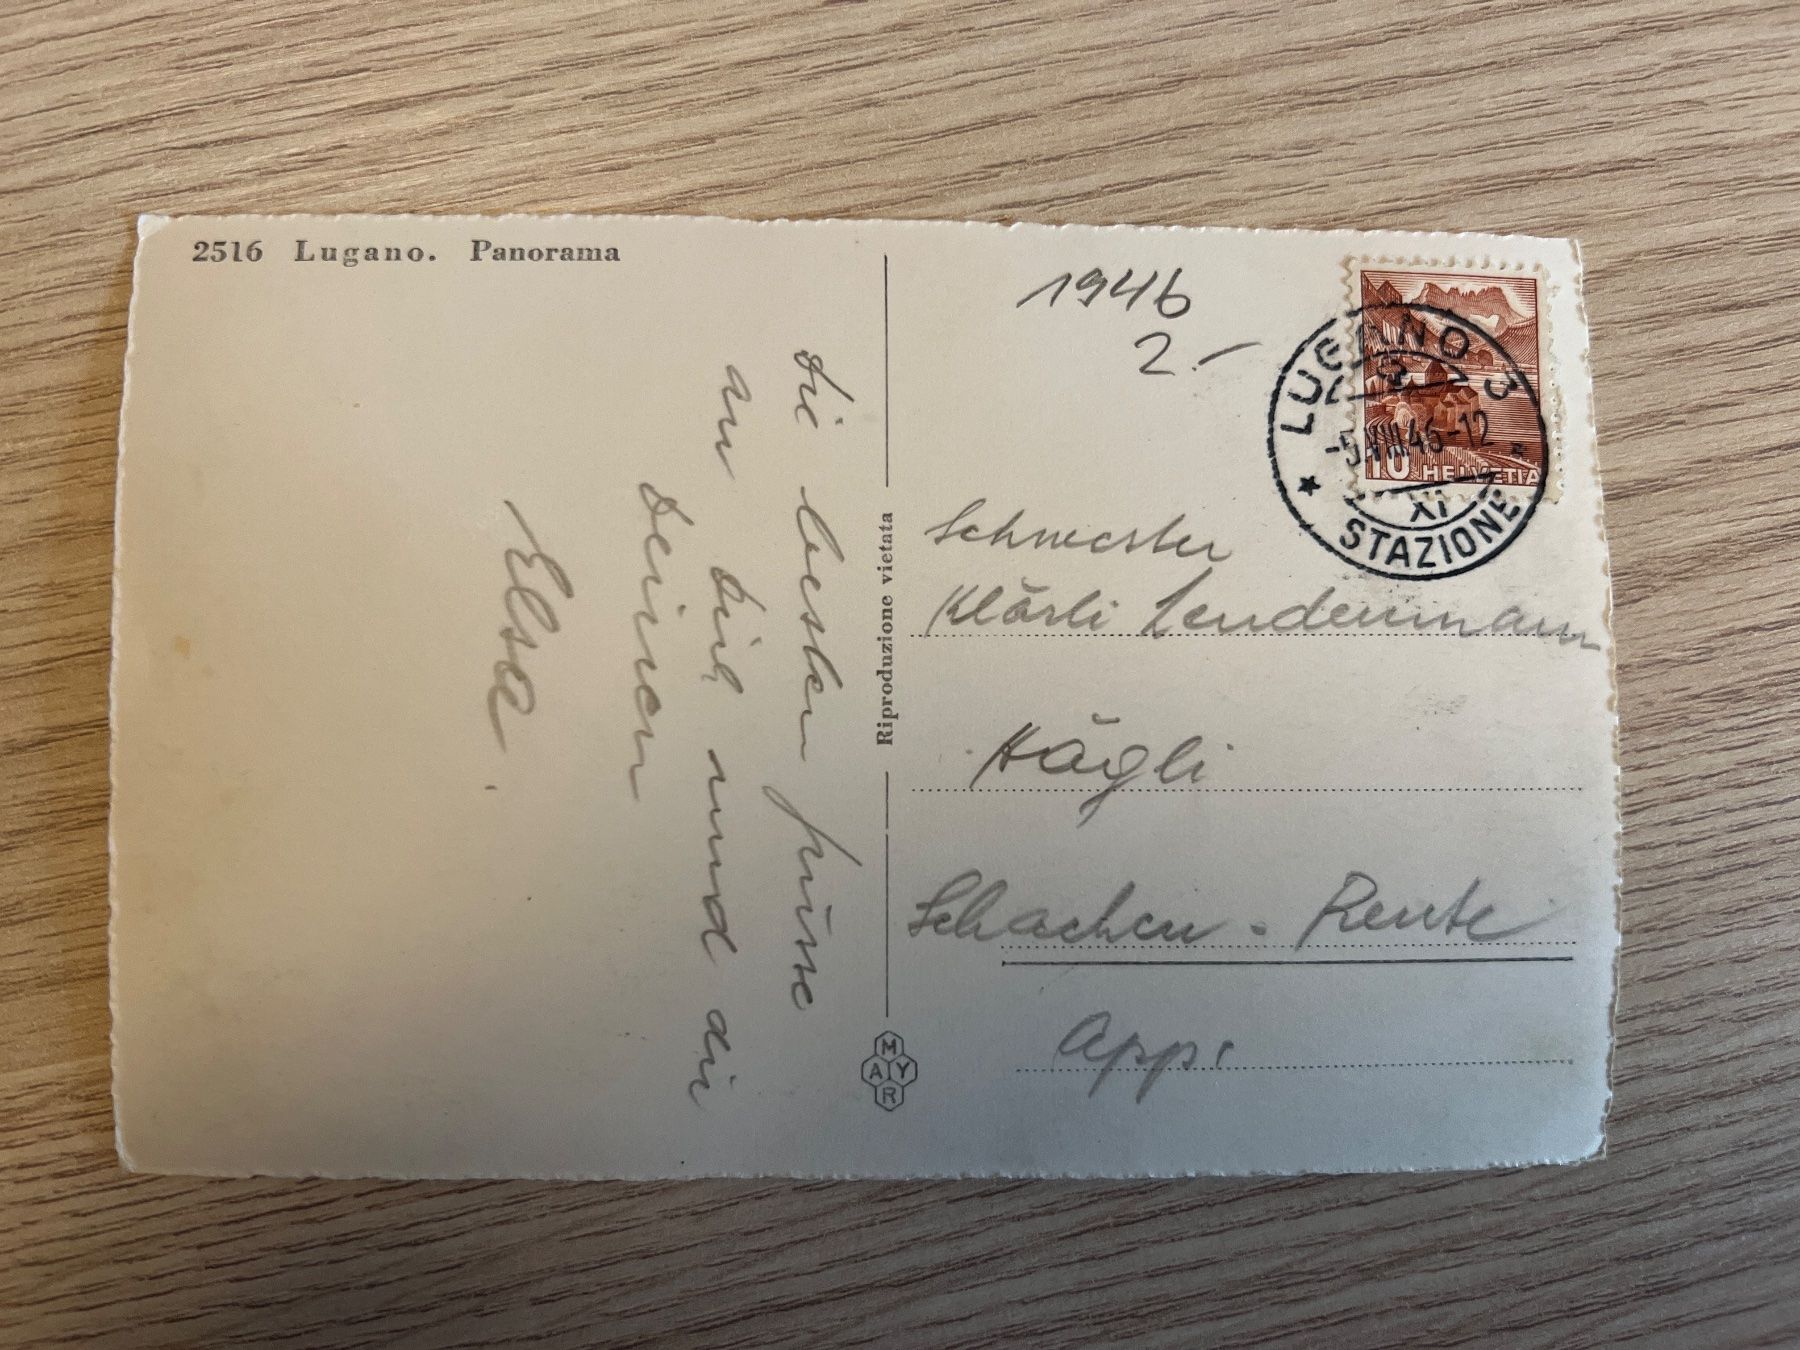 2516 Lugano. Panorama
die besten grüsse
an dich und die
deinen
Elsa.
Riproduzione vietata
MAYR
1946
2.-
10 HELVETIA
LUGANO 3
-5.VIII.46-12
XI
STAZIONE
Schwester
Klärli Lendenmann
Hägli
Schachen. Reute
App.